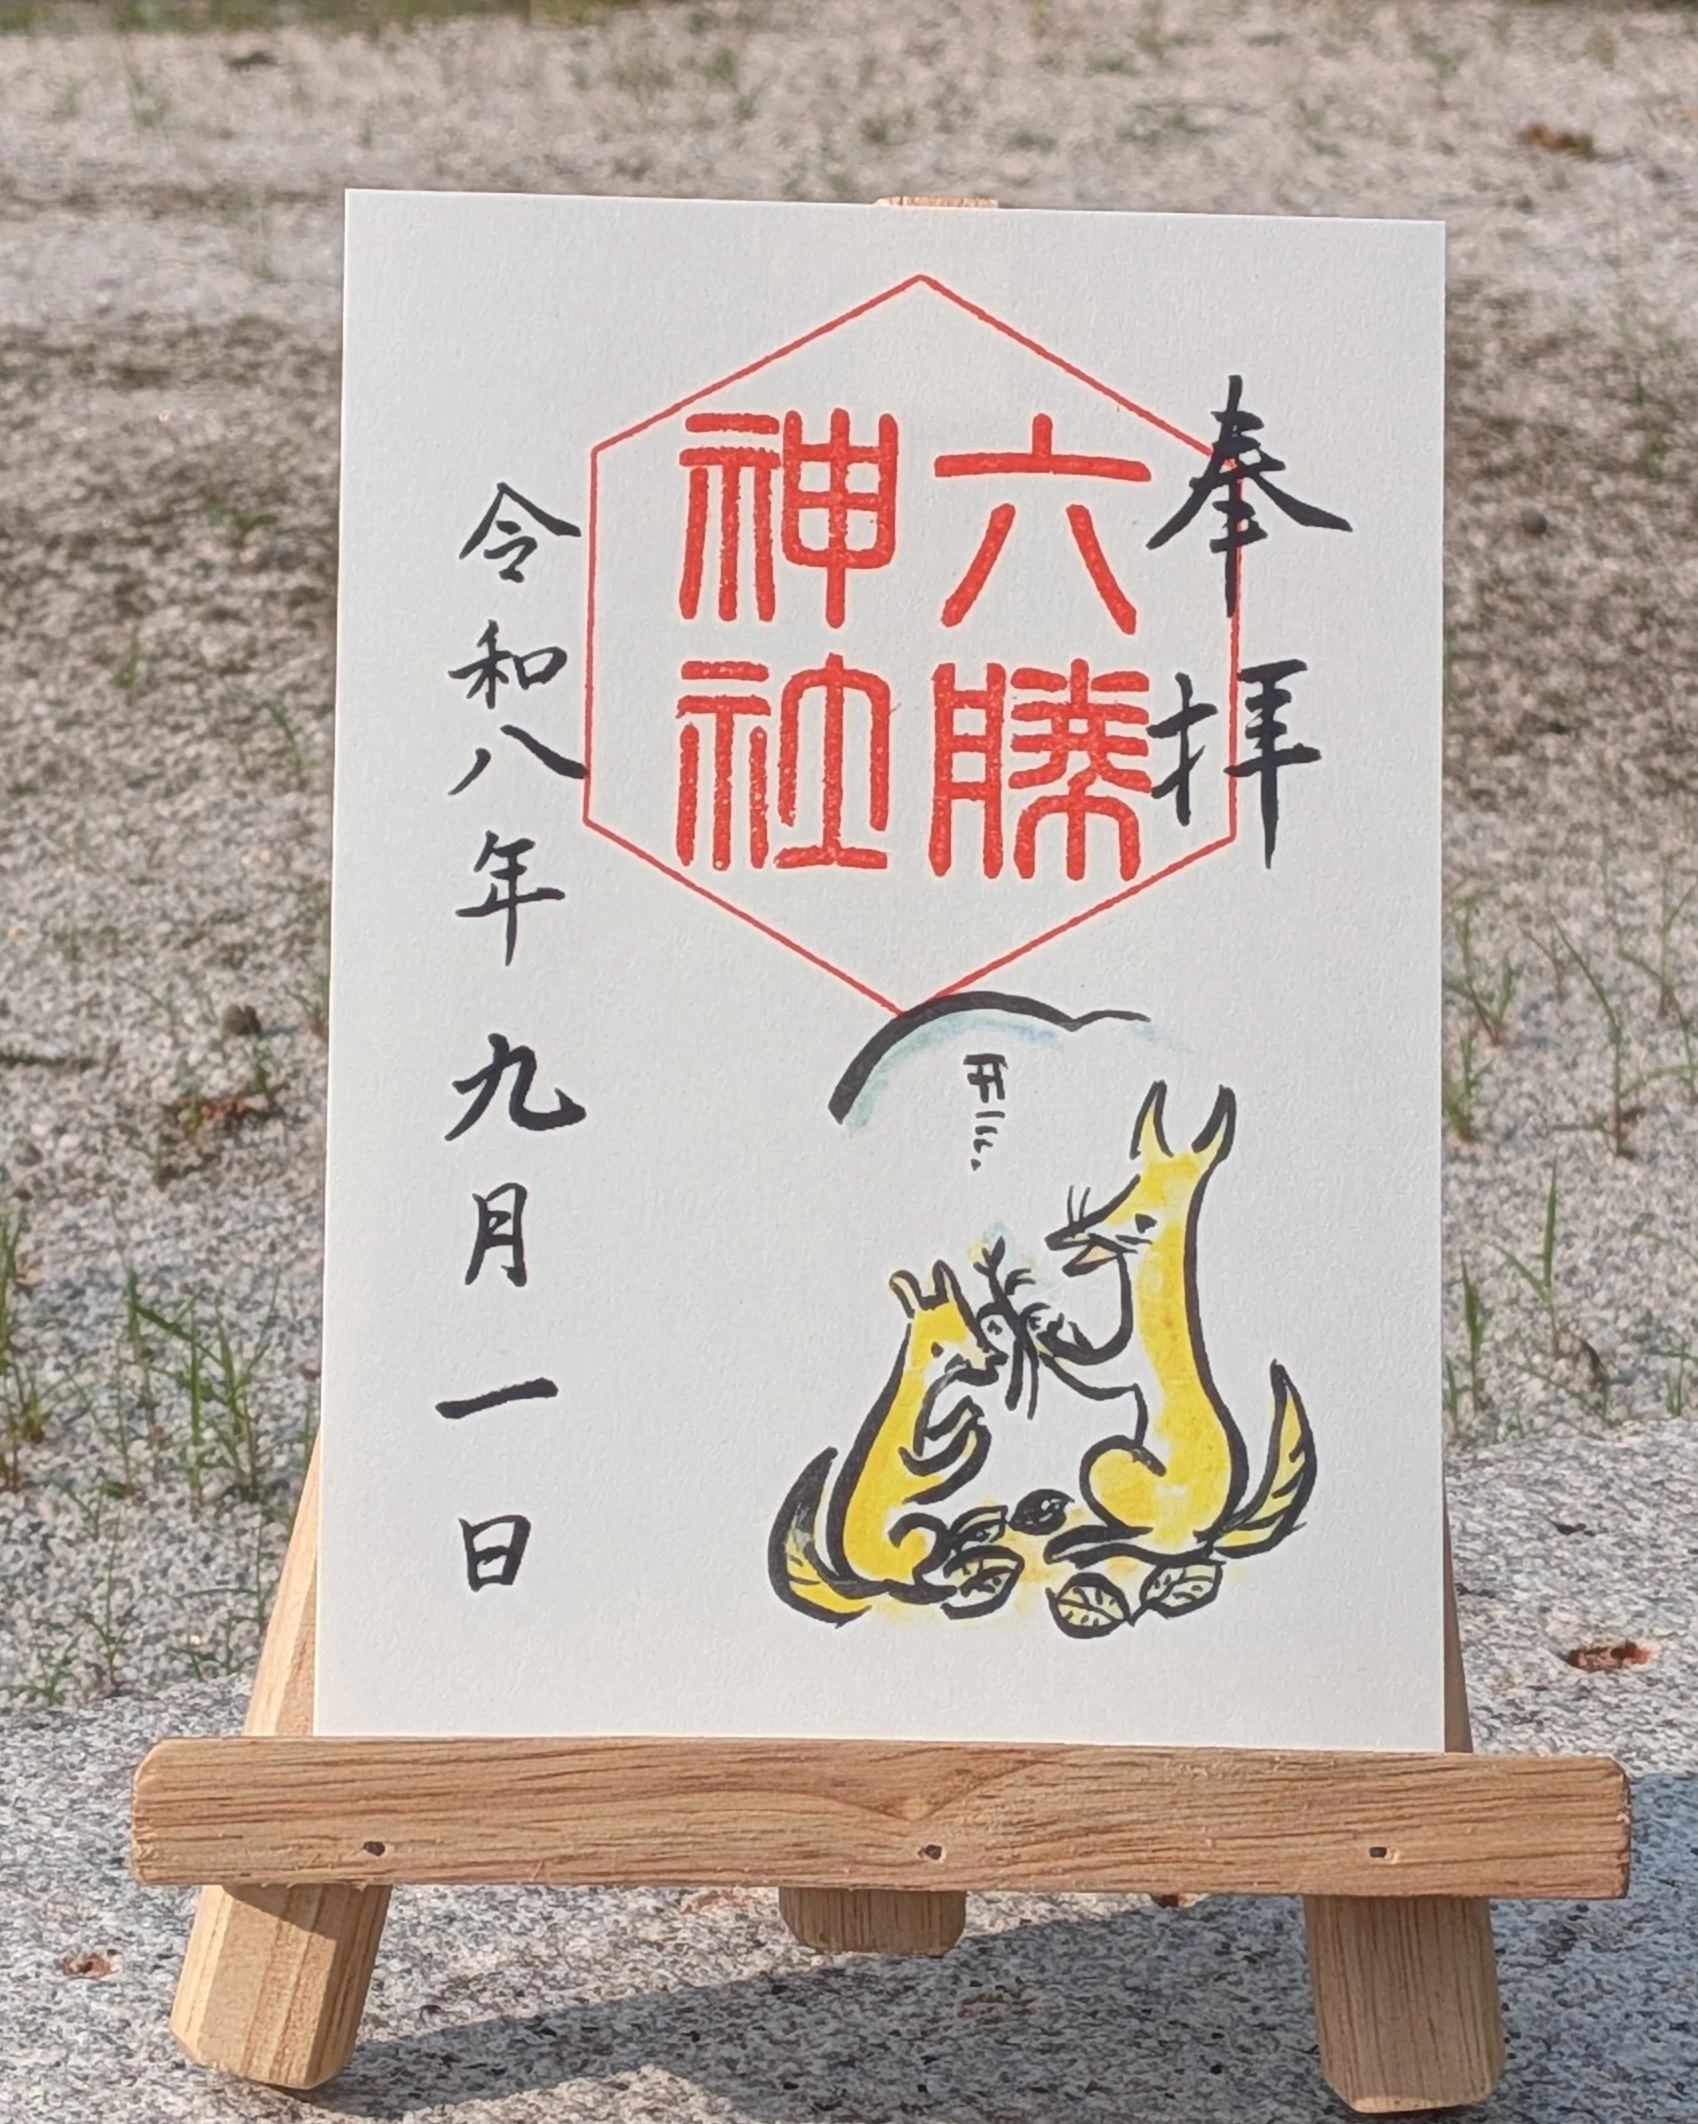 奉拝
六勝
神社
令和八年九月一日